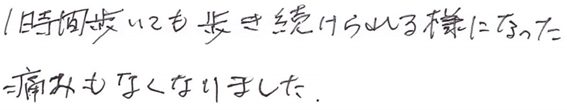 1時間歩いても歩き続けられる様になった
痛みもなくなりました.